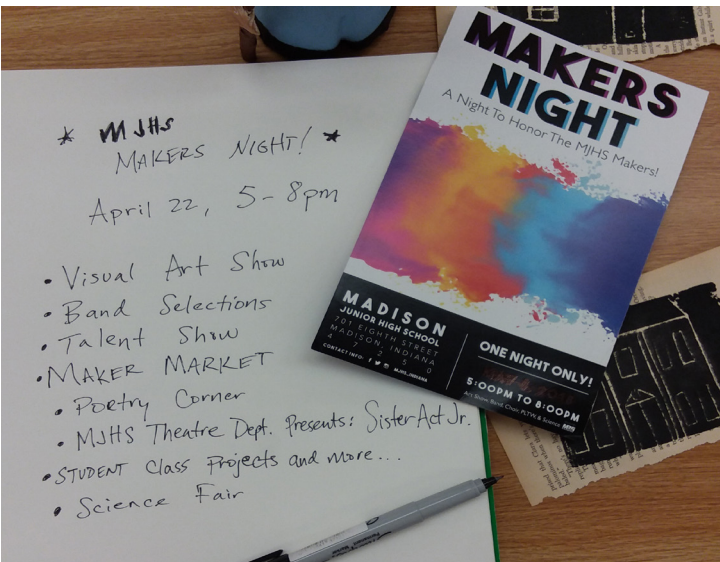 * MJHS
MAKERS NIGHT! *
April 22, 5-8pm
• Visual Art Show
• Band Selections
• Talent Show
• MAKER MARKET
• Poetry Corner
• MJHS Theatre Dept. Presents: Sister Act Jr.
• STUDENT Class Projects and more...
• Science Fair
MAKERS
NIGHT
A Night To Honor The MJHS Makers!
MADISON
JUNIOR HIGH SCHOOL
701 EIGHTH STREET
MADISON, INDIANA
47250
CONTACT INFO: MJHS_INDIANA
ONE NIGHT ONLY!
5:00PM TO 8:00PM
Art Show, Band, Choir, PLTW, & Science